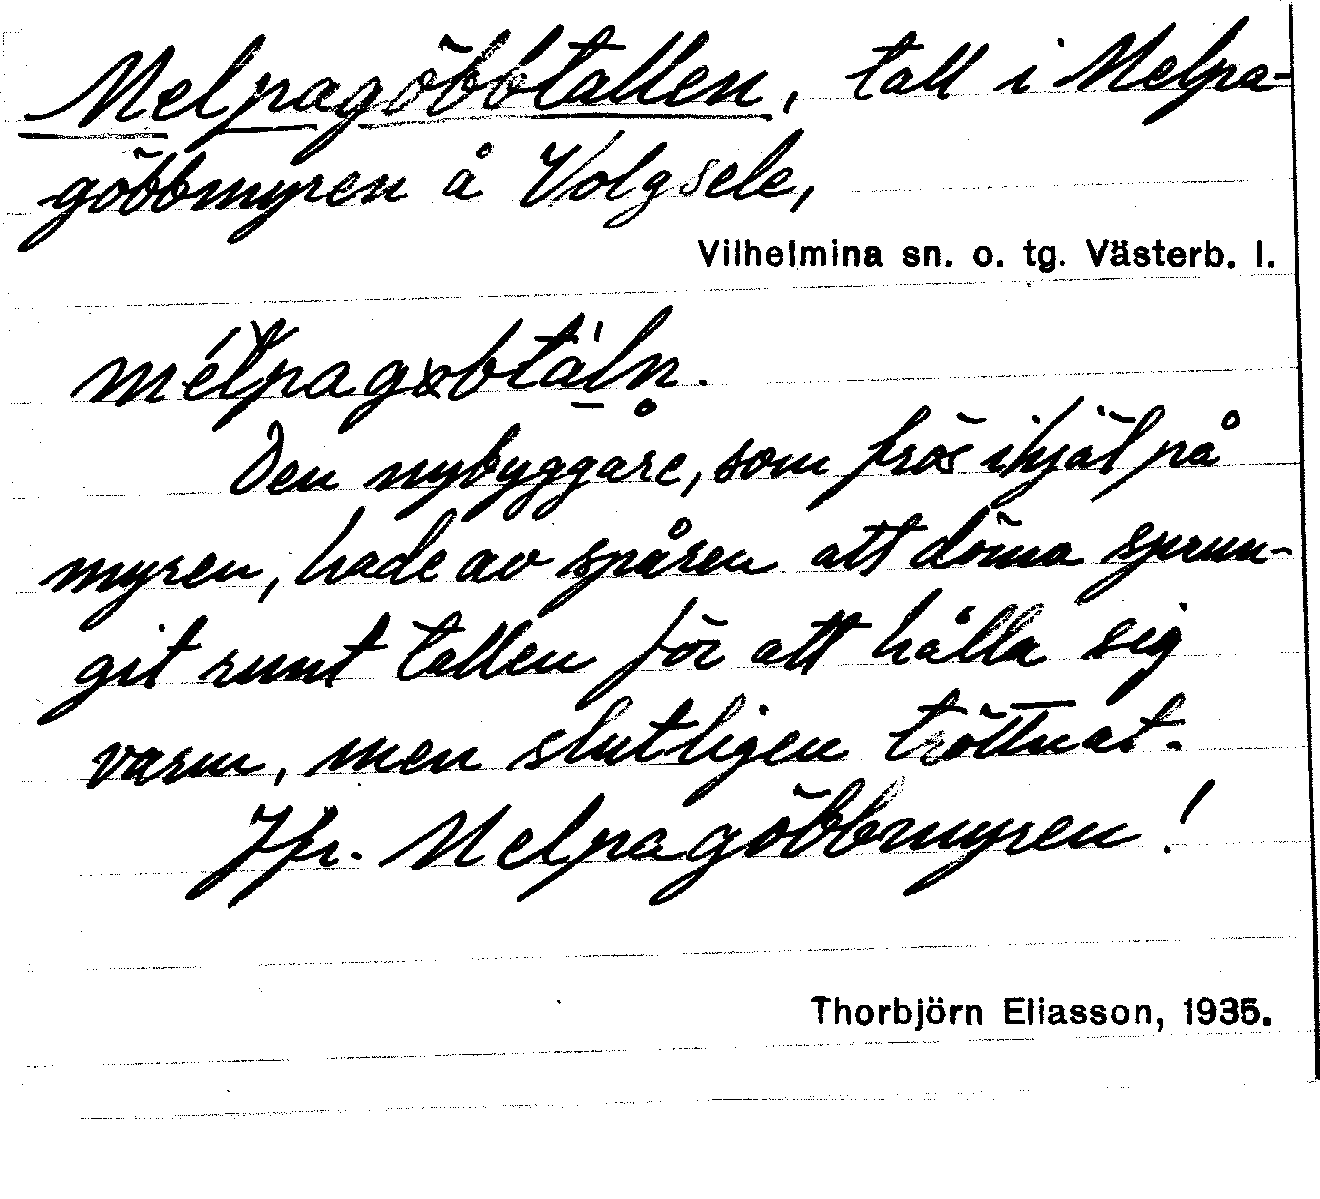 Melpagöbbtallen, tall i Melpa-
göbbmyren å Volgsele,
Vilhelmina sn. o. tg. Västerb. l.
Den nybyggare, som frös ihjäl på
myren, hade av spåren att döma sprun-
git runt tallen för att hålla sig
varm, men slutligen tröttnat.
Jfr. Melpagöbbmyren!
Thorbjörn Eliasson, 1935.